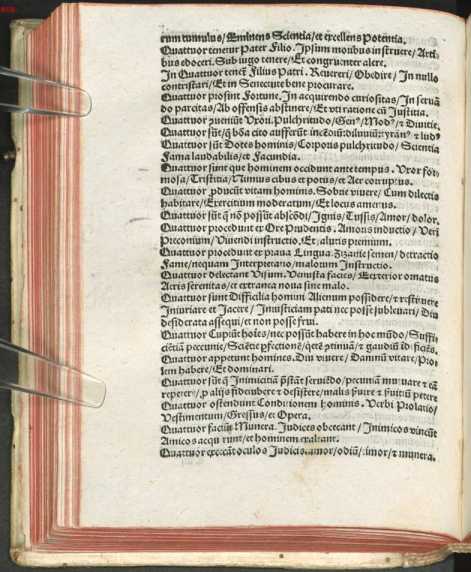 rum tumulus/Eminens Scientia/et excellens Potentia.
Quattuor tenetur Pater Filio. Ipsum moribus instruere/Arti-
bus edoceri. Sub iugo tenere/Et congruenter alere.
In Quattuor tenet̃ Filius Patri. Revereri/Obedire/In nullo
contristari/Et in Senectute bene procurare.
Quattuor prosunt Fortune. In acquirendo curiositas/In servā
do parcitas/Ab offensis abstinere/Et vti ratione cū Justitia.
Quattuor ꝯueniūt Vxori. Pulchritudo/Genꝰ/Modꝰ/⁊ Diuitie.
Quattuor sūt/q̃ bōa cito aufferūt incēdiū: diluuiū: tyrānꝰ ⁊ ludꝰ
Quattuor sūt Dotes hominis/Corporis pulchritudo/Scientia
Fama laudabilis/et Facundia.
Quattuor sunt que hominem occidunt ante tempus. Vxor for-
mosa/Tristitia/Nimius cibus et potus/et Aer corruptus.
Quattuor ꝓducūt vitam hominis. Sobrie vivere/Cum dilectis
habitare/Exercitium moderatum/Et locus amenus.
Quattuor sūt q̃ nō possūt abscōdi/Ignis/Tussis/Amor/dolor.
Quattuor procedunt ex Ore Prudentis. Amoris inductio/Veri
Preconium/Viuendi instructio/Et salutis premium.
Quattuor procedunt ex praua Lingua. Zizanie semen/detractio
Fame/nequam Interpretatio/malorum Instructio.
Quattuor delectant Visum. Venusta facies/Exterior ornatus
Aeris serenitas/et extranea noua sine malo.
Quattuor sunt Difficilia homini Alienum possidere/⁊ restituere
Iniuriare et Jacere/Iniusticiam pati nec posse subleuari/Diu
desiderata assequi/et non posse frui.
Quattuor Cupiūt hoīes/nec possūt habere in hoc mūdo/Suffi-
ciētiā pecunie/Sciētie ꝑfectionē/
Quattuor appetunt homines. Diu vivere/Damnū vitare/Pro-
lem habere/Et dominari.
Quattuor sūt q̃ Inimicitiā
repetere/
Quattuor ostendunt Conditionem hominis. Verbi Prolatio/
Vestimentum/Gressus/et Opera.
Quattuor faciūt Munera. Judices obcecant/Inimicos vincūt
Amicos acquirunt/et hominem exaltant.
Quattuor excecāt oculos Iudicis. amor/odiū/timor/⁊ munera.